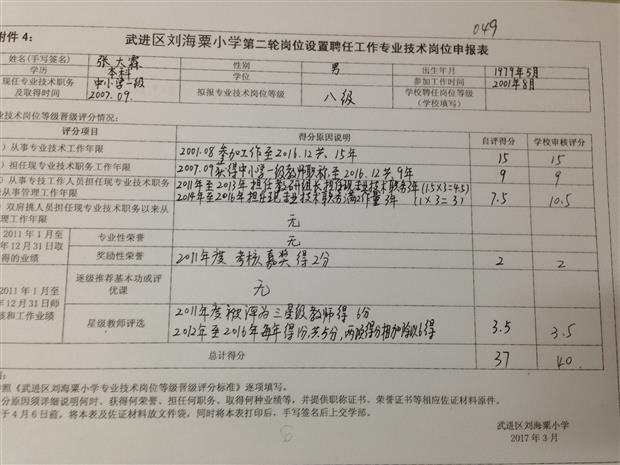 049
附件 4：
武进区刘海粟小学第二轮岗位设置聘任工作专业技术岗位申报表
姓名(手写签名) 张大霖 性别 男 出生年月 1979年5月
学历 本科 学位 参加工作时间 2001年8月
现任专业技术职务及取得时间 中小学一级 2007.09. 拟报专业技术岗位等级 八级 学校聘任岗位等级（学校填写）
业技术岗位等级晋级评分情况：
评分项目 得分原因说明 自评得分 学校审核评分
）从事专业技术工作年限 2001.08参加工作至2016.12共15年 15 15
）担任现专业技术职务工作年限 2007.09获得中小学一级教师职称至2016.12共9年 9 9
）从事专技工作人员担任现专业技术职务以来从事管理工作年限 2011年至2013年担任教研组长担任现专业技术职务3年(1.5×3=4.5)
2014年至2016年担任现专业技术职务满工作量3年(1×3=3) 7.5 10.5
）双肩挑人员担任现专业技术职务以来从事管理工作年限 无
2011 年 1 月至
年 12 月 31 日取
得的业绩
专业性荣誉 无
奖励性荣誉 2011年度考核嘉奖得2分 2 2
逐级推荐基本功或评优课 无
2011 年 1 月至
年 12 月 31 日师
核和工作业绩
星级教师评选 2011年度被评为三星级教师得6分
2012年至2016年每年得1分,共5分,两次得分相加 3.5 3.5
总计得分 37 40
参照《武进区刘海粟小学专业技术岗位等级晋级评分标准》逐项填写。
分原因须详细说明何时、获得何荣誉、担任何职务、取得何种业绩等，并提供职称证书、荣誉证书等相应佐证材料原件。
于 4 月 6 日前，将本表及佐证材料放文件袋，同时将本表打印后，手写签名后上交学部。
武进区刘海粟小学
2017 年 3 月